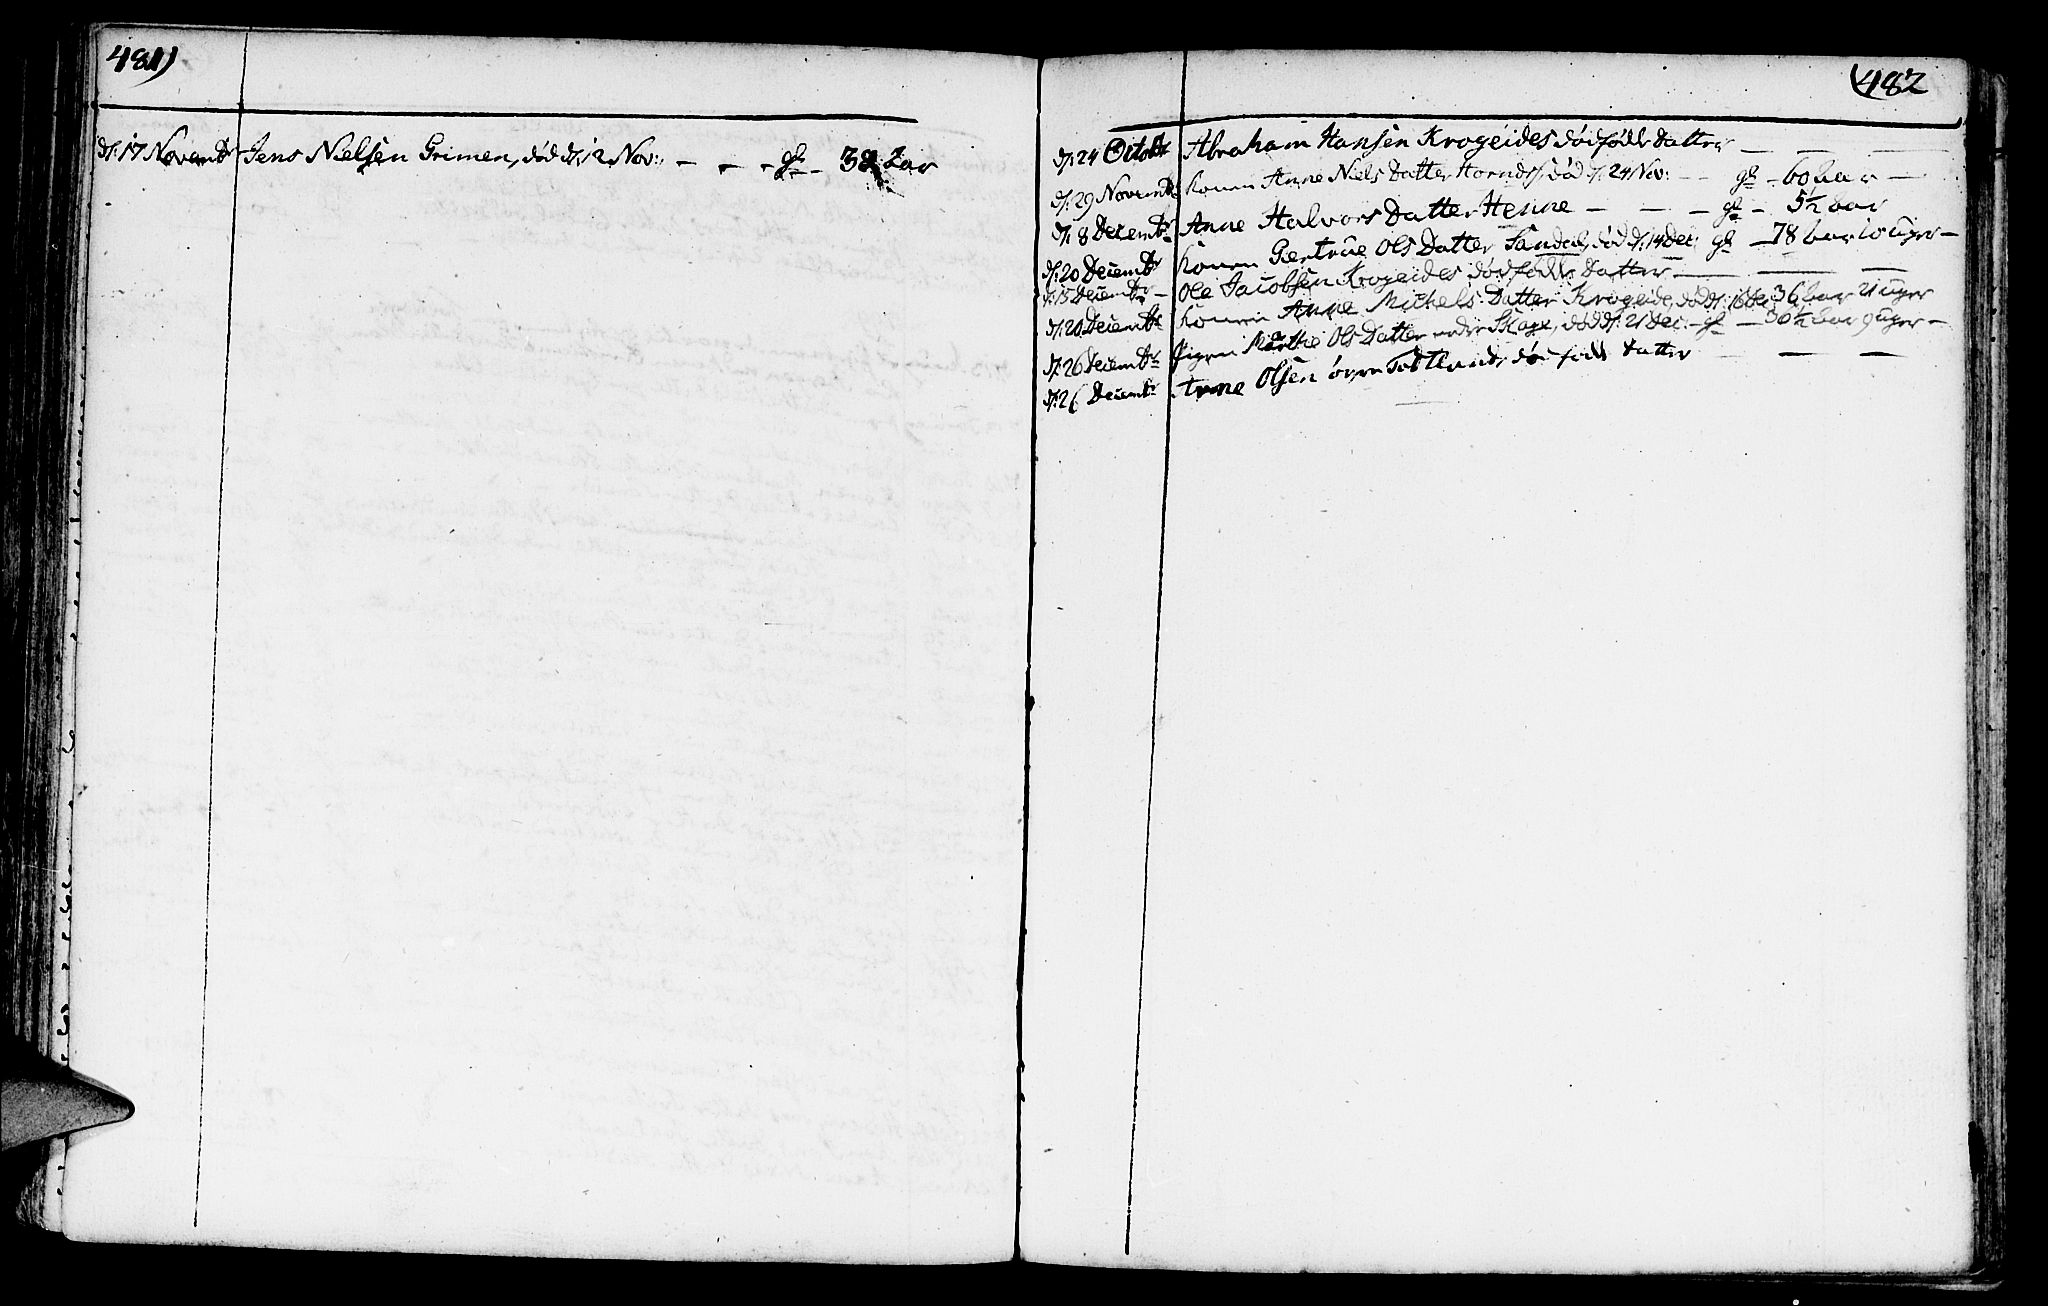 481)
d: 17 Novembr Jens Nielsen Grimen, død d: 12 Nov: - - - gl - 38 Aar
(482
d: 24 Octobr Abraham Hansen Krogeides dødfødde Datter - - -
d: 29 Novembr Konen Anne Niels Datter død d: 24 Nov: - - gl - 60 aar -
d: 8 Decembr Anne Halvors Datter Henne - - - gl - 5½ aar
d: 20 Decembr Konen Giertrue Ols Datter Sandal, død d: 14 Dec: gl - 78 aar 10 uger -
d: 15 Decembr - Ole Jacobsen Krogeides dødfødde Datter - - -
d: 20 Decembr Konen Anne Michels Datter Krogeide, død d: 16 Dec 36 aar 21 uger
d: 26 Decembr Pigen Marthe Ols Datter nedre Skage, død d: 21 Dec: - gl - 56½ aar 9 uger -
d: 26 Decembr Arne Olsen øvre dødfødd Datter - -